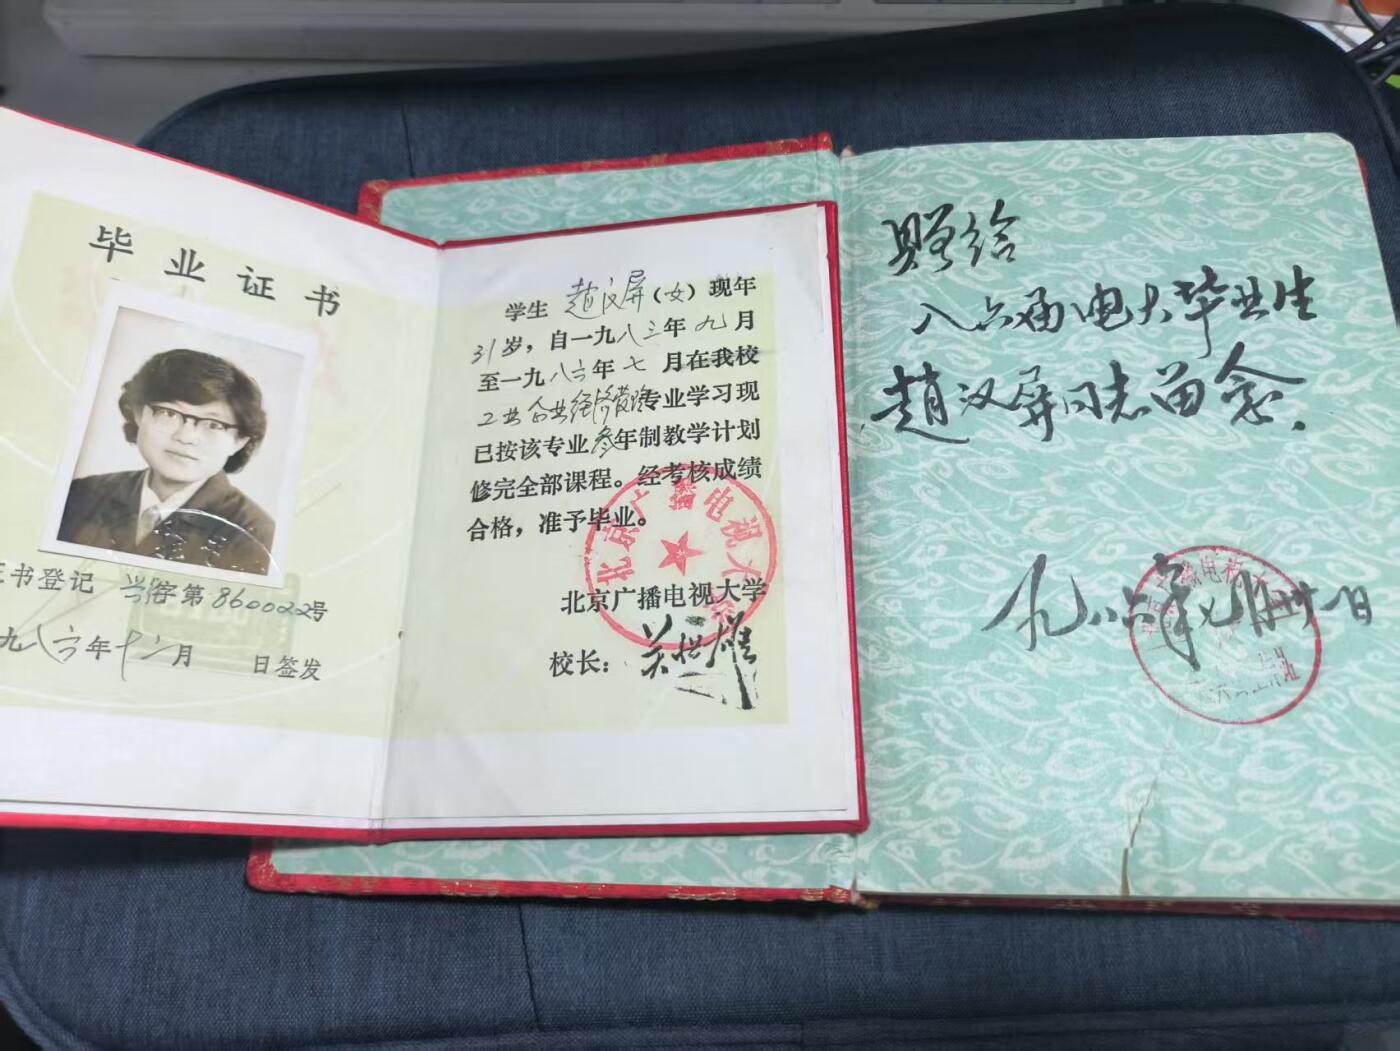 毕业证书
证书登记 学籍字第860022号
一九八六年十二月 日签发
学生 赵汉屏（女）现年
31岁，自一九八三年九月
至一九八六年七月在我校
工业企业经济管理专业学习现
已按该专业叁年制教学计划
修完全部课程。经考核成绩
合格，准予毕业。
北京广播电视大学
校长：
北京广播电视大学
赠给
八六届电大毕业生
赵汉屏同志留念.
一九八六年七月廿一日